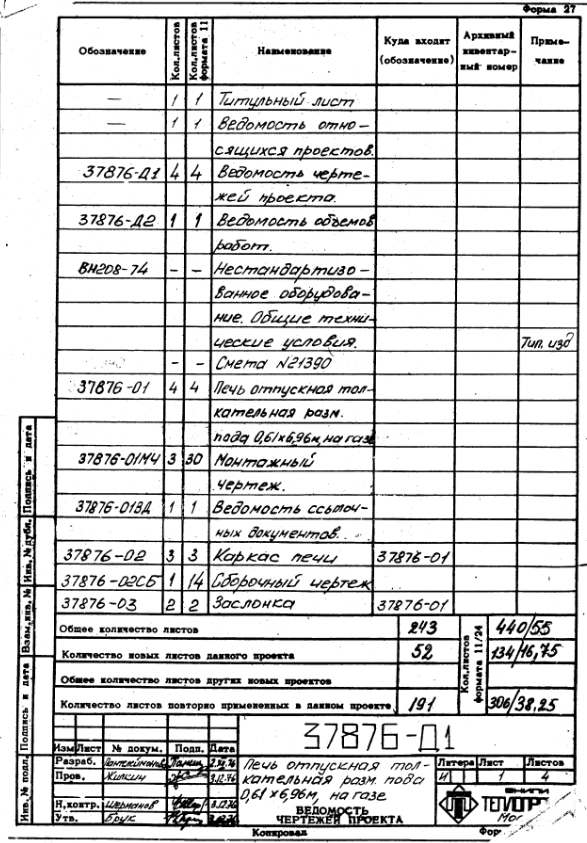 Форма 27
Обозначение Кол. листов Кол. листов формата 11 Наименование Куда входит (обозначение) Архивный инвентар- ный номер Приме- чание
— 1 1 Титульный лист
— 1 1 Ведомость отно-
сящихся проектов.
37876-Д1 4 4 Ведомость черте-
жей проекта.
37876-Д2 1 1 Ведомость объемов
работ.
ВН208-74 – – Нестандартизо-
ванное оборудова-
ние. Общие техни-
ческие условия. Тип. изд
– – Смета N21390
37876-01 4 4 Печь отпускная тол-
кательная разм.
пода 0,61×6,96м, на газе
37876-01МЧ 3 30 Монтажный
чертеж.
37876-01ВД 1 1 Ведомость ссылоч-
ных документов.
37876-02 3 3 Каркас печи 37876-01
37876-02СБ 1 14 Сборочный чертеж
37876-03 2 2 Заслонка 37876-01
Общее количество листов 243 Кол. листов формата 11/24 440/55
Количество новых листов данного проекта 52 134/16,75
Общее количество листов других новых проектов
Количество листов повторно примененных в данном проекте 191 306/38,25
37876-Д1
Изм Лист № докум. Подп. Дата
Разраб.
Пров. Жилкин 3.12.76
Н.контр.
Утв. Брук
Печь отпускная тол-
кательная разм. пода
0,61×6,96м, на газе
ВЕДОМОСТЬ
ЧЕРТЕЖЕЙ ПРОЕКТА
Литера Лист Листов
И 1 4
ВНИПИ
ТЕПЛОПР
Мос
Копировал Фор
Инв. № подл. Подпись и дата Взам. инв. № Инв. № дубл. Подпись и дата